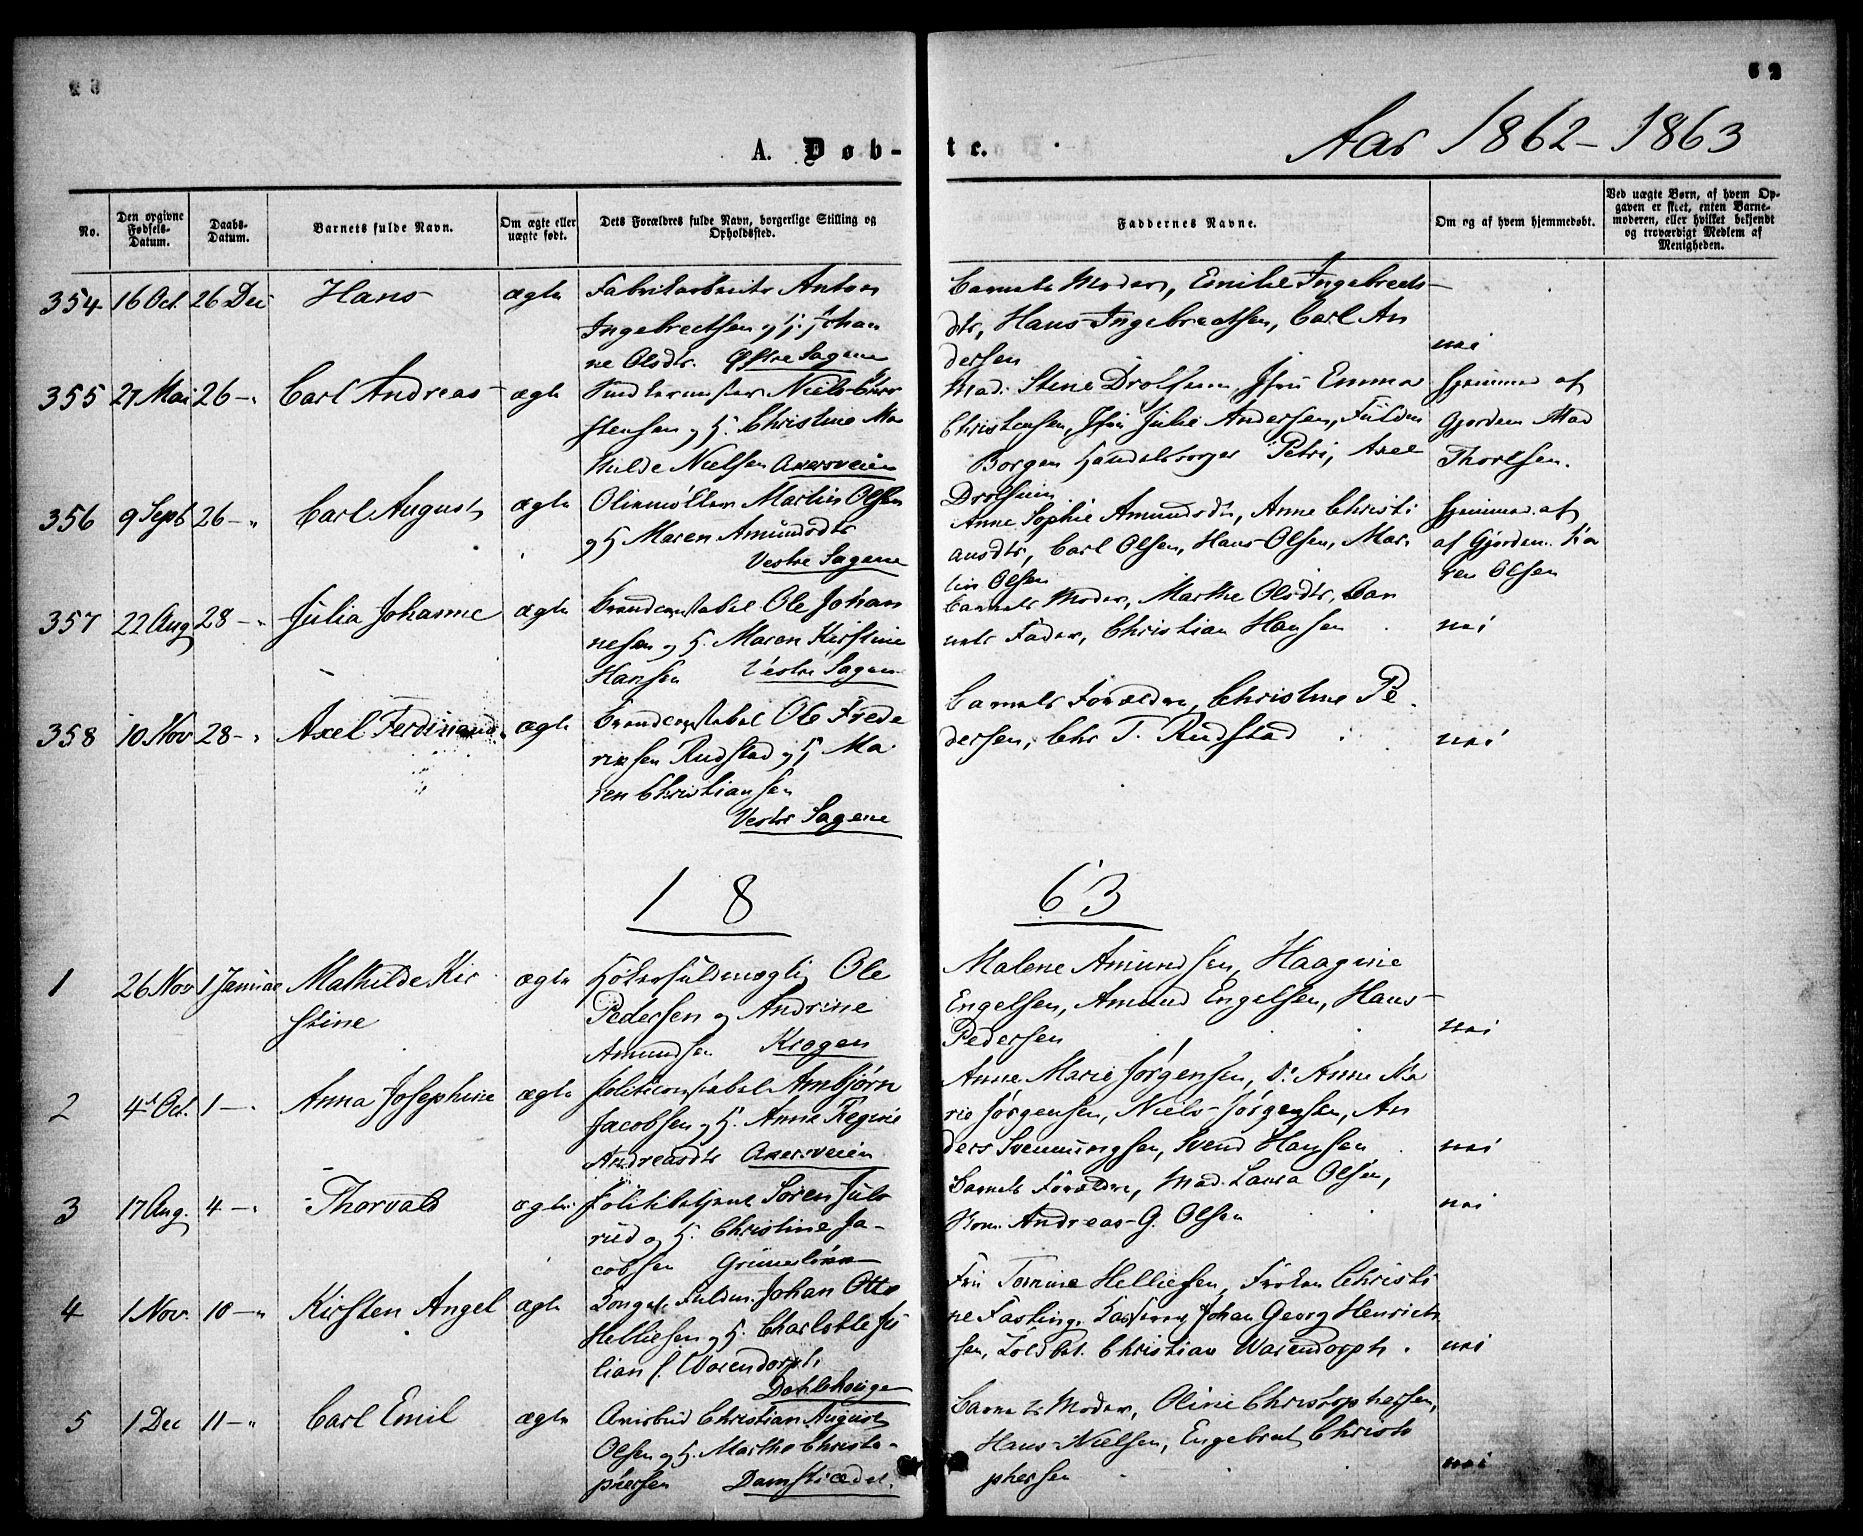 62
A. Døb-
te.
Aar 1862-1863
No.
Den opgivne Fødsels-Datum.
Daabs-Datum.
Barnets fulde Navn.
Om ægte eller uægte født.
Dets Forældres fulde Navn, borgerlige Stilling og Opholdssted.
Faddernes Navne.
Om og af hvem hjemmedøbt.
Ved uægte Børn, af hvem Opgaven er skeet, enten Barnemoderen, eller hvilket bekjendt og troværdigt Medlem af Menigheden.
354 16 Oct. 26 Dec Hans ægte
Fabrikarbeider Anton
Ingebrectsen og H. Johan
ne Olsdtr. Østre Sagene
Barnets Moder, Emilie Ingebrects-
dtr, Hans Ingebrectsen, Carl An
dersen
nei
355 27 Mai 26 -" Carl Andreas ægte
Niels Chri
stensen og H. Christine Ma
thilde Nielsen Akersveien
Mad. Stine Drolsum, Jfru Emma
Christensen, Jfru Julie Andersen, Fuldm
Borgen Handelsborger Petri, Axel
Drolsum
Hjemmed. af
Gjordem Mad
Thorlsen.
356 9 Sept 26 -" Carl August ægte
Oliemøller Martin Olsen
og H Maren Amundsdtr
Vestre Sagene
Anne Sophie Amundsdtr, Anne Christi
ansdtr, Carl Olsen, Hans Olsen, Mar-
tin Olsen
Hjemmed. af
af Gjordem. Ka
ren Olsen
357 22 Aug 28 -" Julia Johanne ægte
Brandconstabel Ole Johan
nesen og H. Maren Kirstine
Hansen Vestre Sagene
Barnets Moder, Marthe Olsdtr, Bar
nets Fader, Christian Hansen
nei
358 10 Nov 28 -" Axel Ferdinand ægte
Brandconstabel Ole Frede
riksen Rudstad og H Ma
ren Christiansen
Vestre Sagene
Barnets Forældre, Christine Pe
dersen, Chr T. Rudstad
nei
18 63
1 26 Nov 1 Januar Mathilde Kir
stine
ægte
Høkerfuldmægtig Ole
Pedersen og Andrine
Amundsen Krogen
Malene Amundsen, Haagine
Engelsen, Amund Engelsen, Hans
Pedersen
nei
2 4 Oct. 1 -" Anna Josephine ægte
Politiconstabel Arnbjørn
Jacobsen og H. Anne Regine
Andreasdtr Akersveien
Anne Marie Jørgensen, Do Anne Ma
rie Jørgensen, Niels Jørgensen, An
ders Svenningsen, Svend Hansen
nei
3 17 Aug. 4 -" Thorvald ægte
Politibetjent Søren Juls
rud og H. Christine Ja-
cobsen Grünerløkken
Barnets Forældre, Mad. Laura Olsen,
Andreas G. Olsen
nei
4 1 Nov. 10 -" Kirsten Angel ægte
Fuldm. Johan Otto
Helliesen og H. Charlotte Ju
lian f. Warendorph
Dahlehougen
Fru Tomine Helliesen, Frøken Christi
ne Fasting, Kasserer Johan Georg Henrich
sen, Toldbet. Christian Warendorph.
nei
5 1 Dec 11 -" Carl Emil ægte
Avisbud Christian August
Olsen og H. Marthe Christo-
phersen Damstrædet.
Barnets Moder, Oline Christophersen,
Hans Nielsen, Engebret Christo
phersen
nei